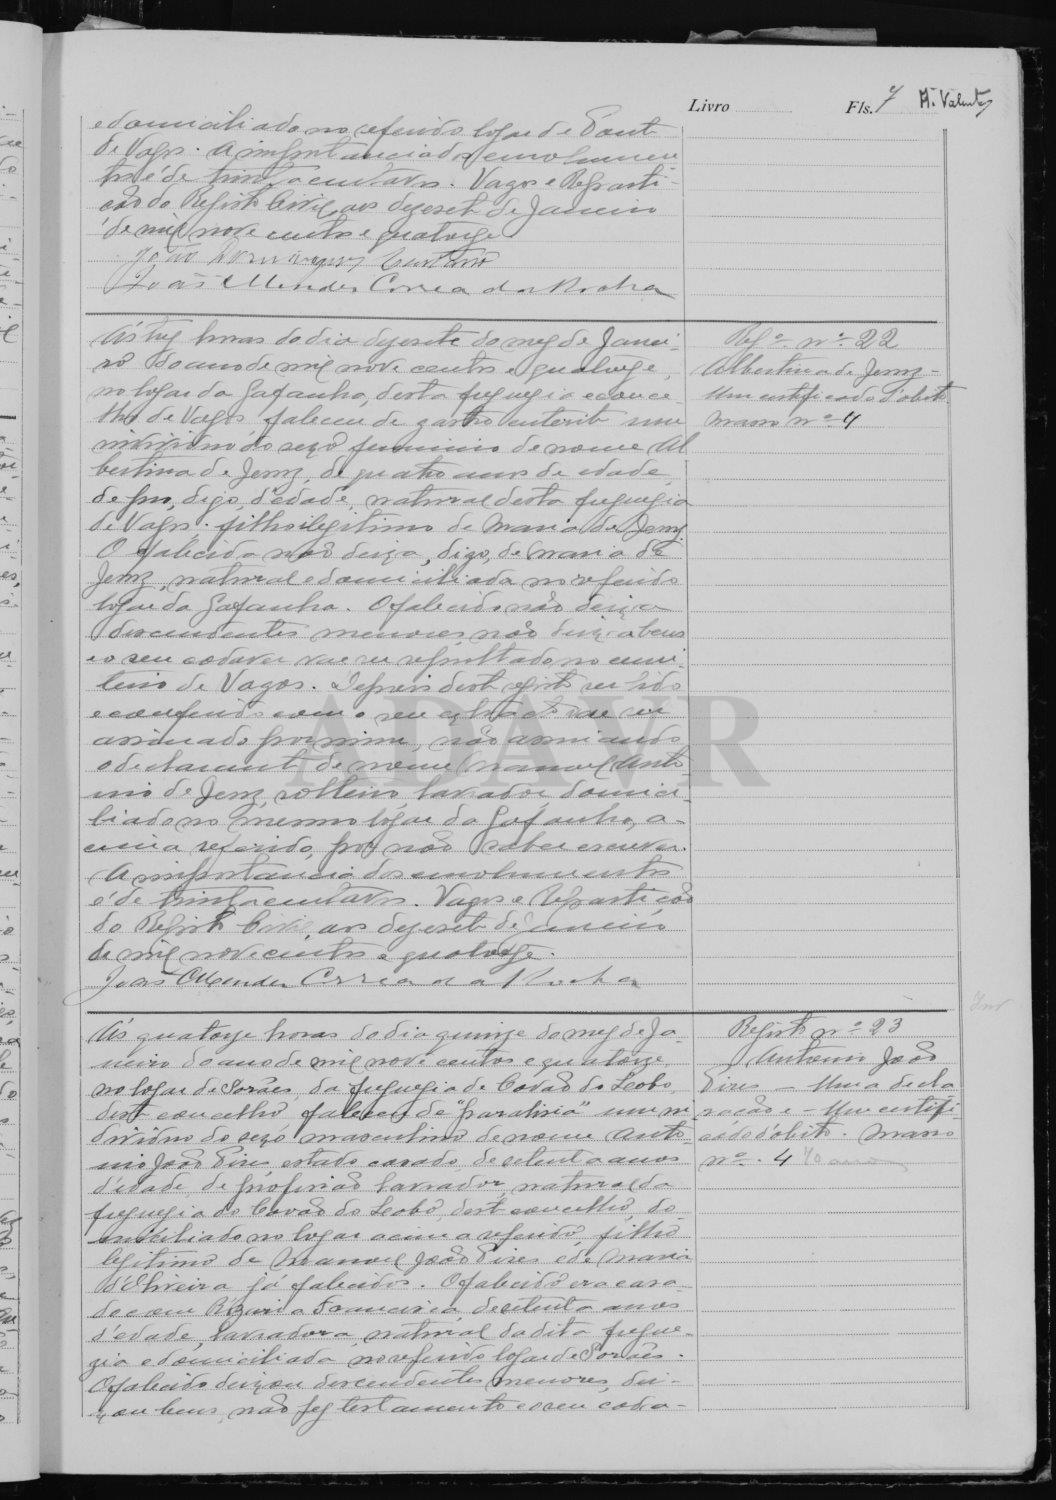 Livro Fls. 7 A. Valente
e domiciliado no referido logar de Pont
de Vagos. A importancia dos emolumen
tos é de trinta centavos. Vagos e Reparti-
ção do Registo Civil, aos dezesete de Janeiro
de mil nove centos e quatorze
João Domingues
João Mendes Correa da Rocha
Ás tres horas do dia dezesete do mez de Janei-
ro do anno de mil nove centos e quatorze,
no logar da Gafanha, desta freguezia e conce-
lho de Vagos falleceu de gastro enterite um
individuo do sexo feminino de nome Al
bertina de Jesuz, de quatro annos de edade
de digo, d'edade, natural desta freguezia
de Vagos. filho ilegitimo de Maria de Jesuz
O falecido não deixa, digo, de Maria de
Jesuz, natural e domiciliada no referido
logar da Gafanha. O falecido não deixa
descendentes menores, não deixa bens
e o seu cadaver vae ser sepultado no cemi-
terio de Vagos. Depois deste registo ser lido
e conferido com o seu extracto vae ser
assinado por mim, não assinando
o declarante de nome Manoel Anto
nio de Jesuz, solteiro, lavrador, domici-
liado no mesmo logar da Gafanha, a-
cima referido, por não saber escrever.
A importancia dos emolumentos
é de trinta centavos. Vagos e Repartição
do Registo Civil, aos dezesete de Janeiro
de mil nove centos e quatorze.
João Mendes Correa da Rocha
Reg.º nº 22
Albertina de Jesuz -
Um certificado d'obito
Masso nº 4
Ás quatorze horas do dia quinze do mez de Ja-
neiro do anno de mil nove centos e quatorze
no logar de Sorães, da freguezia de Covão do Lobo
dest concelho, faleceu de "paralisia" um in
dividuo do sexo masculino de nome Anto
nio João Pires, estado casado, de setenta annos
d'edade, de profissão lavrador, natural da
freguezia do Covão do Lobo, dest concelho, do-
miciliado no logar acima referido, filho
legitimo de Manoel João Pires e de Maria
d'Oliveira já falecidos. O falecido era casa-
do com Francisca, de setenta annos
d'edade, lavradora, natural da dita fregue-
zia e domiciliada no referido logar de Sorães.
O falecido deixou descendentes menores, dei-
xou bens, não fez testamento e o seu cada-
Registo nº 23
Antonio João
Pires - Uma decla
ração e - Um certifi
cado d'obito. Masso
nº. 4 70 anos
ADAVR